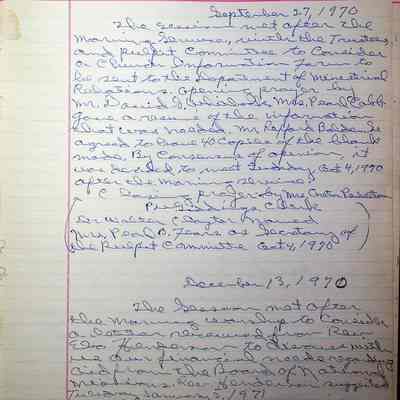 September 27, 1970
The Session met after the
Morning Service, with the Trustees,
and Pulpit Committee to Consider
a Church Information Form to
be sent to the Department of Ministerial
Relations. Opening prayer by
Mr. David Mrs. Pearl Cobb
gave a resume of the information
that was needed. Mr.
agreed to have 40 Copies of the blank
made. By Consensus of opinion, it
was decided to meet Sunday Oct 4, 1970
after the morning service.
Closing prayer by Mrs.
Clerk
Dr. Walter named
Mrs. Pearl as Secretary of
the Pulpit Committee Oct 4, 1970
December 13, 1970
The Session met after
the morning worship to Consider
a letter received from Rev.
Henderson to discuss with
us our financial needs regarding
aid from the Board of National
Missions. Rev. Henderson suggested
Tuesday January 5, 1971